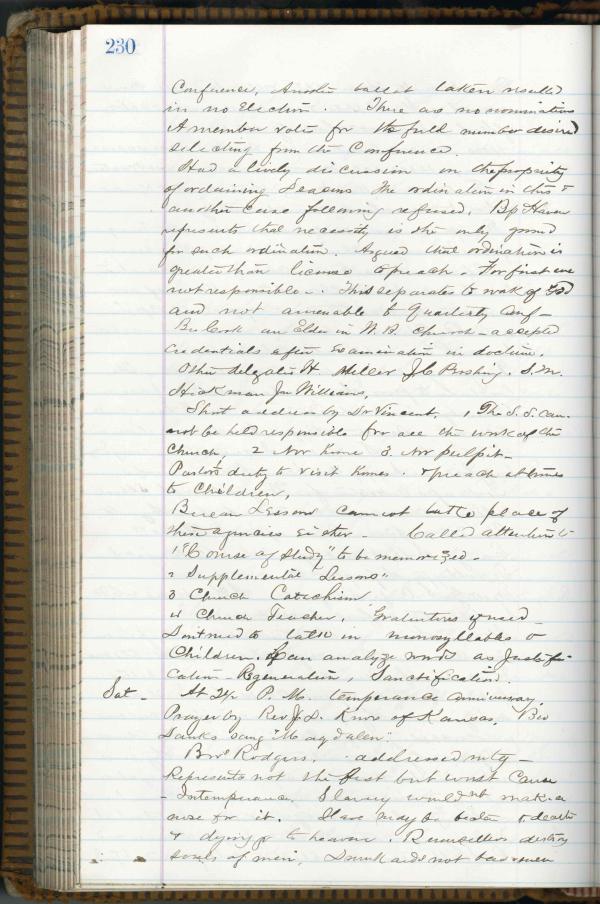 230
Conference, Another ballot taken resulted
in no Election. There are no nominations
A member votes for the full number desired
selecting from the Conference.
Had a lively discussion on the propriety
of ordaining Deacons The ordination in this &
another case following refused. Bp Haven
represents that necessity is the only ground
for such ordination. Argued that ordination is
greater than license to preach. For first are
not responsible. This separates to work of God
and not amenable to Quarterly Conf-
Bro Cook an Elder in W. B. Church - accepted
Credentials after examination in doctrine.
Other delegates H Miller J. C. S. M.
Hickman Jno Williams,
Short address by Dr Vincent, 1 The S. S. can-
not be held responsible for all the work of the
Church, 2 Nor home 3 Nor pulpit-
Pastors duty to visit homes. & preach at times
to Children,
Berean Lessons cannot take place of
these agencies either - Called attention to
1 "Course of Study" to be memorized -
2 Supplemental "Lessons"
3 Church Catechism
4 Church Teacher,
Don't need to talk in monosyllables to
Children. Can analyze words as Justifi-
cation Regeneration, Sanctification.
Sat - At 2½ P. M. temperance anniversary.
Prayer by Rev J. D. Knox of Kansas, Bro
Sanks sang "Magdalen"
Bro Rodgers. addressed mtg -
Represents not the best but worst Cause
- Intemperance. Slavery would not make a
nose for it. Slave may be beaten to death
& dying go to heaven. Rumsellers destroy
souls of men, Drunkards not